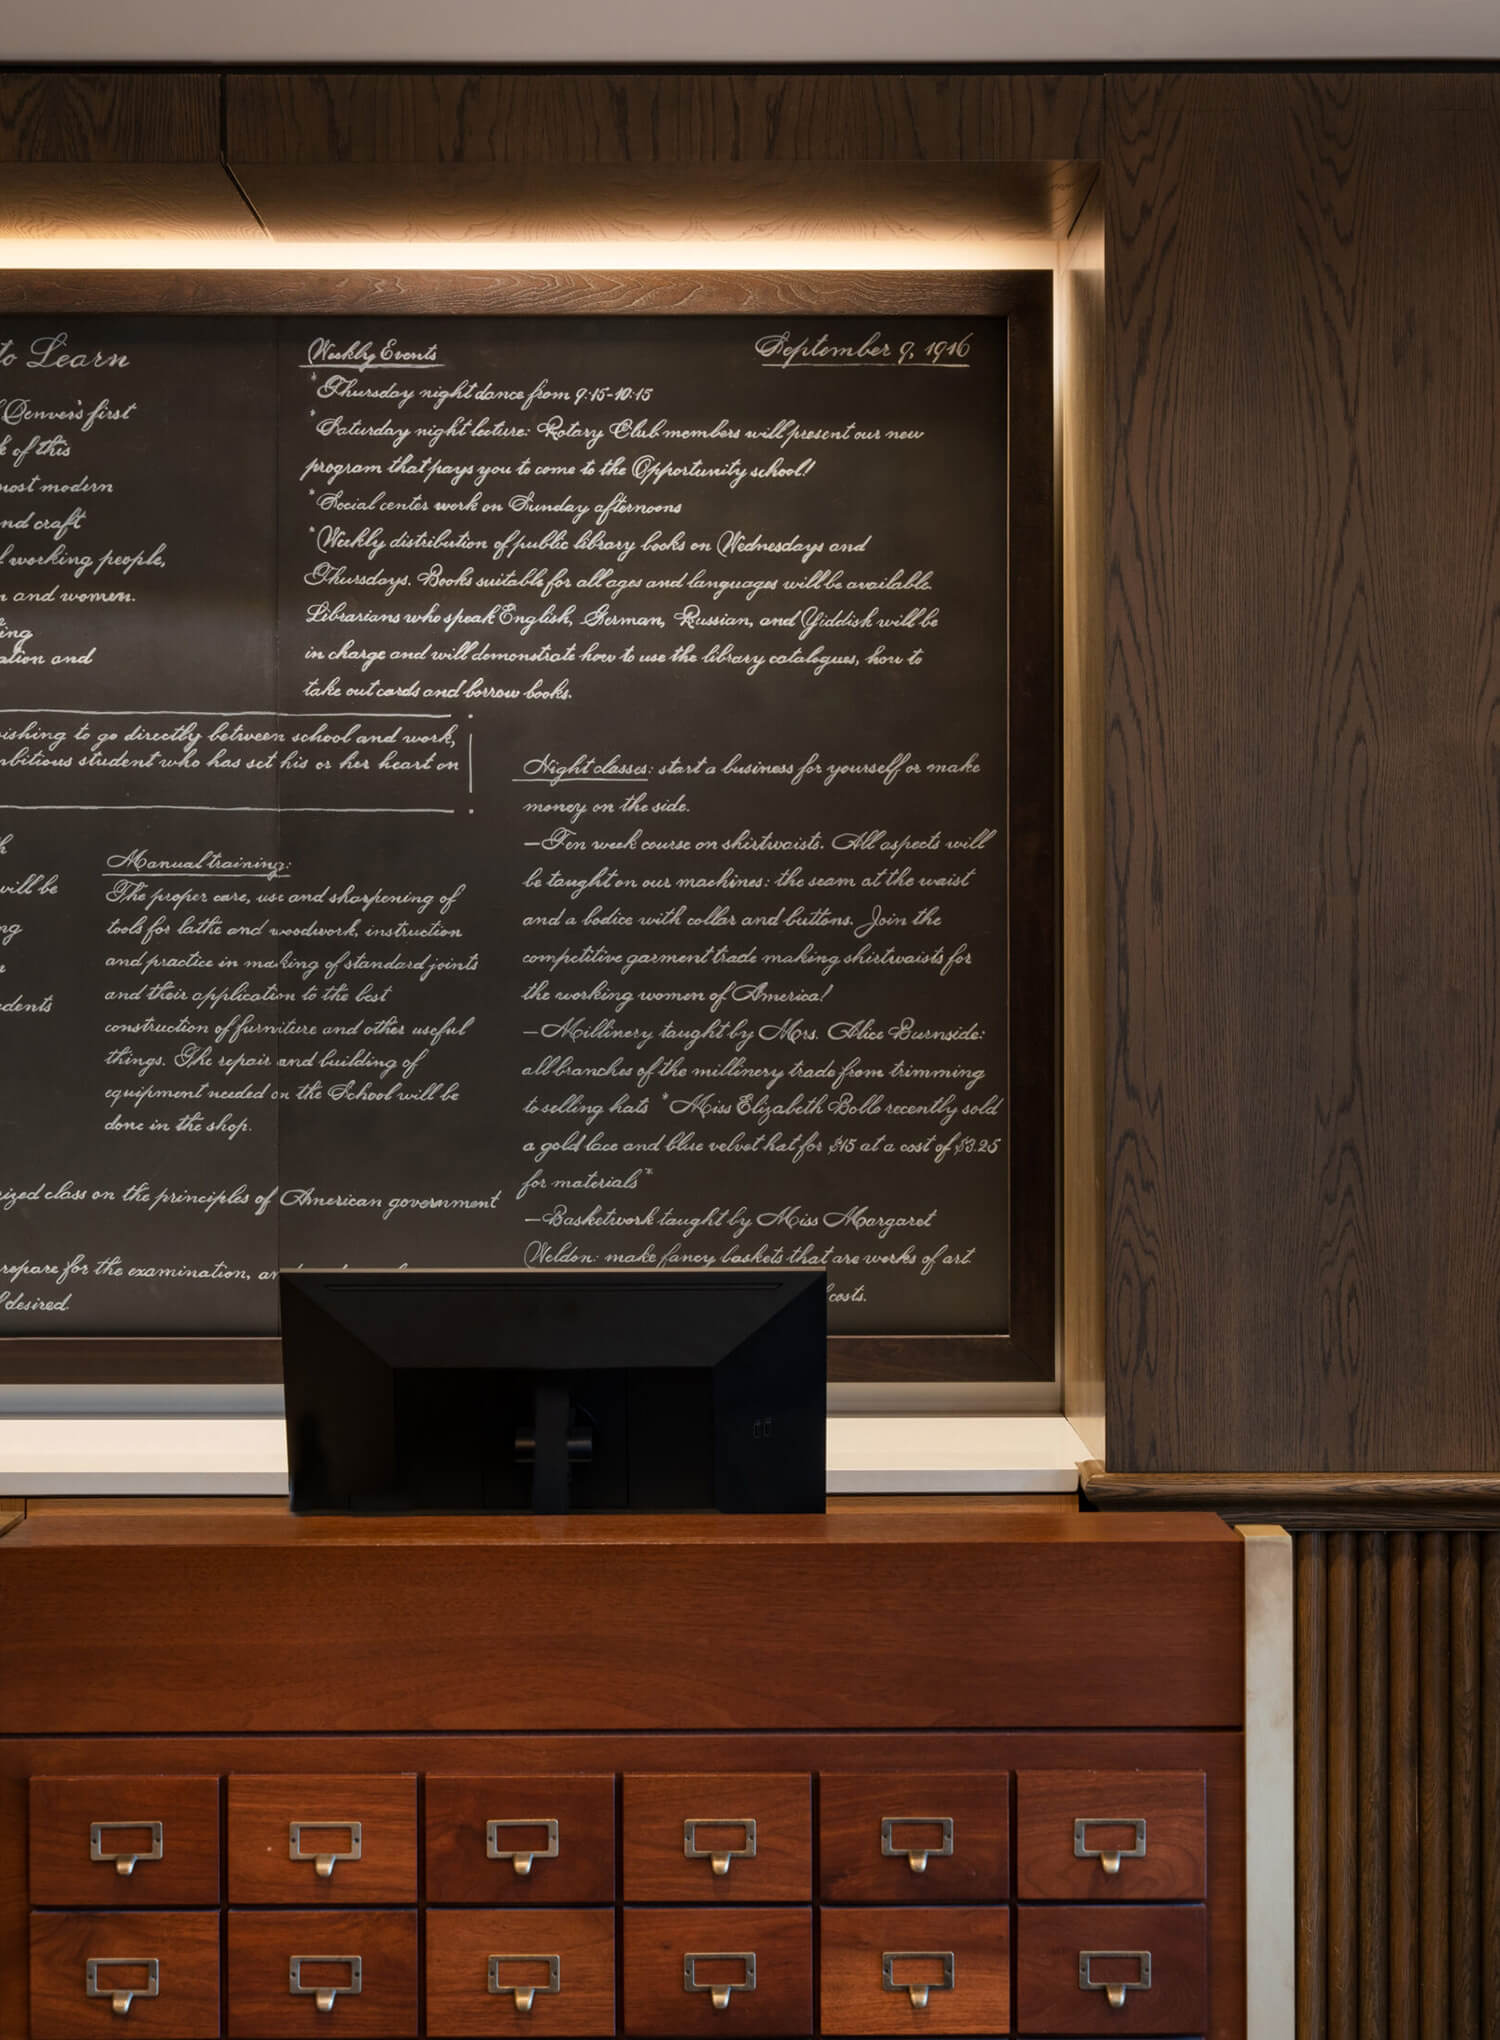 to Learn
Denver's first
of this
most modern
and craft
working people,
and women.
ing
ation and
Weekly Events
September 9, 1916
* Thursday night dance from 9:15-10:15
* Saturday night lecture: Rotary Club members will present our new
program that pays you to come to the Opportunity school!
* Social center work on Sunday afternoons
* Weekly distribution of public library books on Wednesdays and
Thursdays. Books suitable for all ages and languages will be available.
Librarians who speak English, German, Russian, and Yiddish will be
in charge and will demonstrate how to use the library catalogues, how to
take out cards and borrow books.
ishing to go directly between school and work,
mbitious student who has set his or her heart on
will be
ng
udents
Manual training:
The proper care, use and sharpening of
tools for lathe and woodwork, instruction
and practice in making of standard joints
and their application to the best
construction of furniture and other useful
things. The repair and building of
equipment needed on the School will be
done in the shop.
rized class on the principles of American government
repare for the examination, an
desired.
Night classes: start a business for yourself or make
money on the side.
—Ten week course on shirtwaists. All aspects will
be taught on our machines: the seam at the waist
and a bodice with collar and buttons. Join the
competitive garment trade making shirtwaists for
the working women of America!
—Millinery taught by Mrs. Alice Burnside:
all branches of the millinery trade from trimming
to selling hats *Miss Elizabeth Bollo recently sold
a gold lace and blue velvet hat for $15 at a cost of $3.25
for materials*
—Basketwork taught by Miss Margaret
Weldon: make fancy baskets that are works of art
costs.